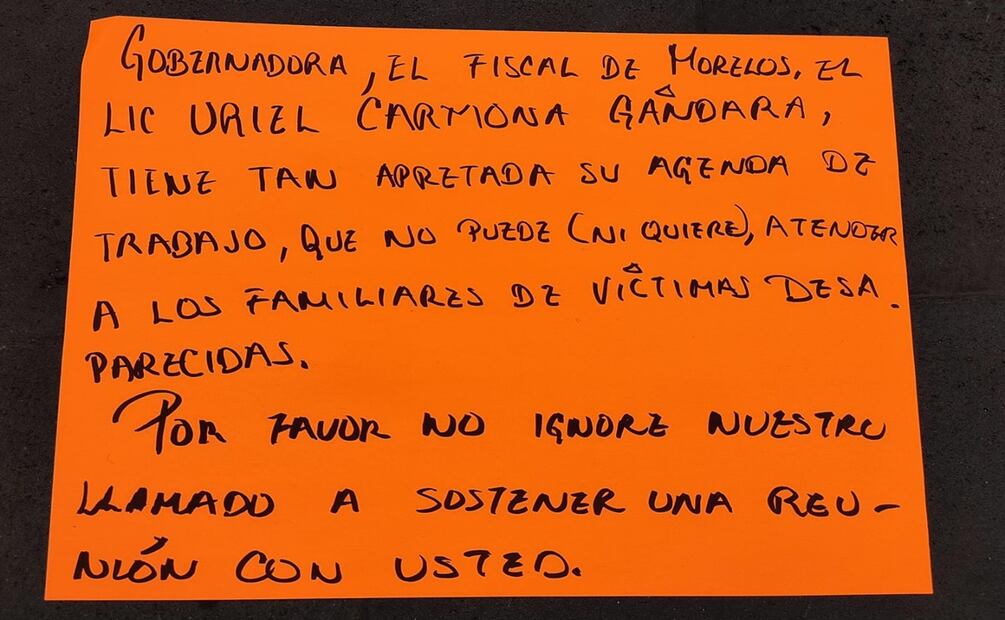 GOBERNADORA, EL FISCAL DE MORELOS, EL
LIC URIEL CARMONA GÁNDARA,
TIENE TAN APRETADA SU AGENDA DE
TRABAJO, QUE NO PUEDE (NI QUIERE), ATENDER
A LOS FAMILIARES DE VÍCTIMAS DESA.
PARECIDAS.
POR FAVOR NO IGNORE NUESTRO
LLAMADO A SOSTENER UNA REU-
NIÓN CON USTED.